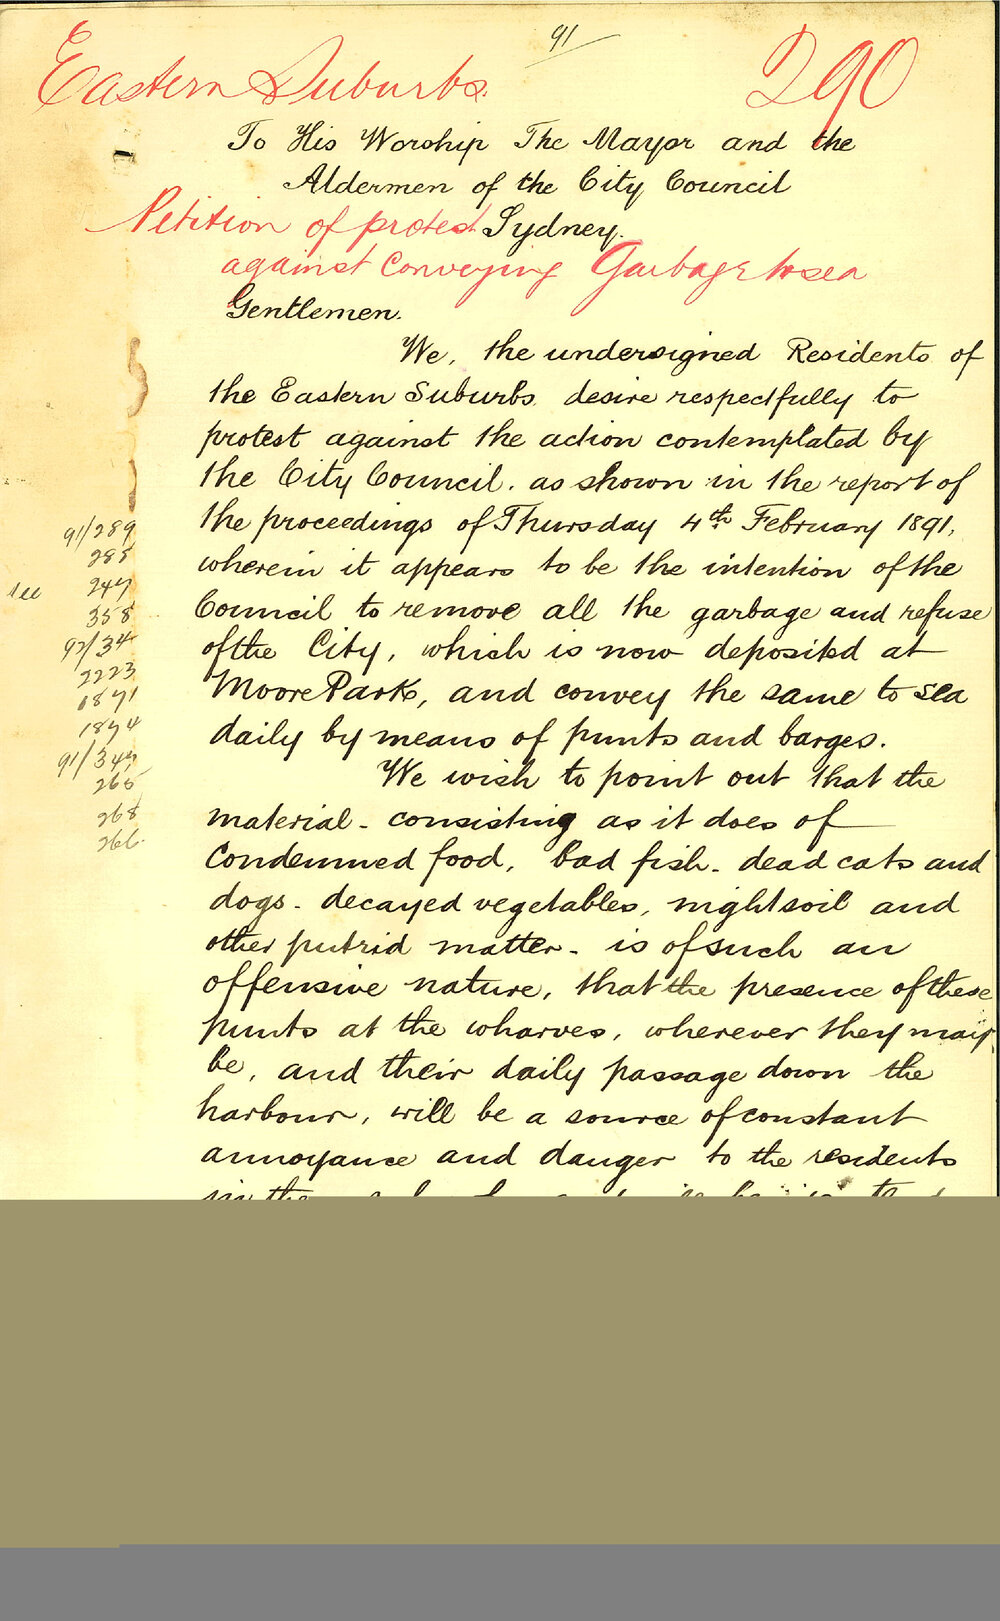 91
Eastern Suburbs. 290
To His Worship The Mayor and the
Aldermen of the City Council
Petition of protest Sydney.
against Conveying Garbage to sea
Gentlemen.
We, the undersigned Residents of
the Eastern Suburbs desire respectfully to
protest against the action contemplated by
the City Council. as shown in the report of
the proceedings of Thursday 4th February 1891,
wherein it appears to be the intention of the
Council to remove all the garbage and refuse
of the City, which is now deposited at
Moore Park, and convey the same to sea
daily by means of punts and barges.
We wish to point out that the
material - consisting as it does of
Condemned food, bad fish - dead cats and
dogs - decayed vegetables, nightsoil and
other putrid matter - is of such an
offensive nature, that the presence of these
punts at the wharves, wherever they may
be, and their daily passage down the
harbour, will be a source of constant
annoyance and danger to the residents
91/289
285
see 247
358
92/34
2223
1871
1874
91/347
265
268
266